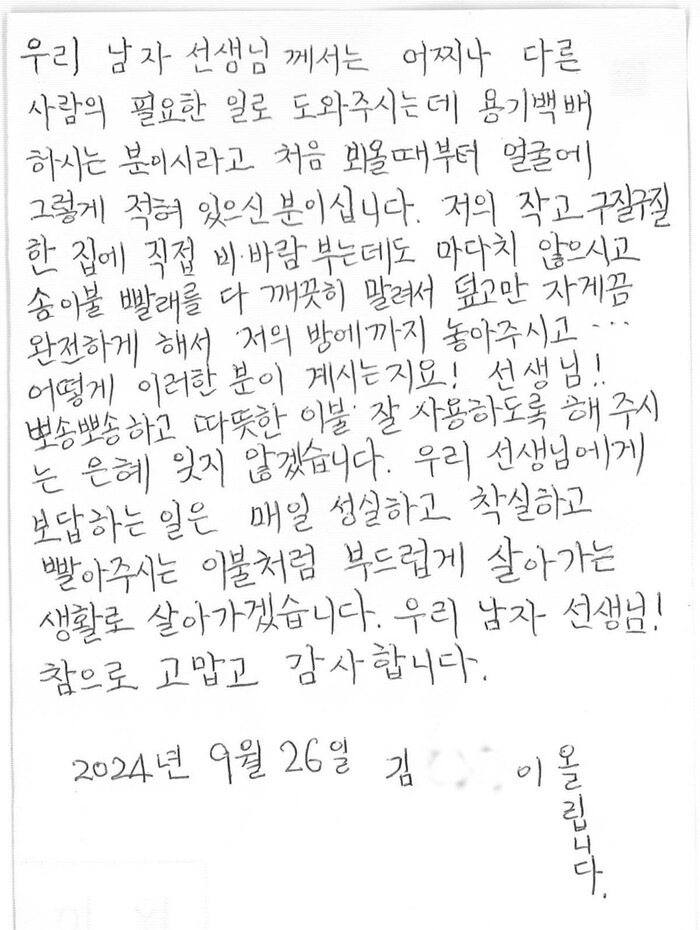 우리 남자 선생님께서는 어찌나 다른
사람의 필요한 일로 도와주시는데 용기백배
하시는 분이시라고 처음 뵈올때부터 얼굴에
그렇게 적혀 있으신 분이십니다. 저의 작고 구질구질
한 집에 직접 비·바람 부는데도 마다치 않으시고
솜이불 빨래를 다 깨끗히 말려서 덮고만 자게끔
완전하게 해서 저의 방에까지 놓아주시고···
어떻게 이러한 분이 계시는지요! 선생님!!
뽀송뽀송하고 따뜻한 이불 잘 사용하도록 해 주시
는 은혜 잊지 않겠습니다. 우리 선생님에게
보답하는 일은 매일 성실하고 착실하고
빨아주시는 이불처럼 부드럽게 살아가는
생활로 살아가겠습니다. 우리 남자 선생님!
참으로 고맙고 감사합니다.
2024년 9월 26일 김 이 올립니다.